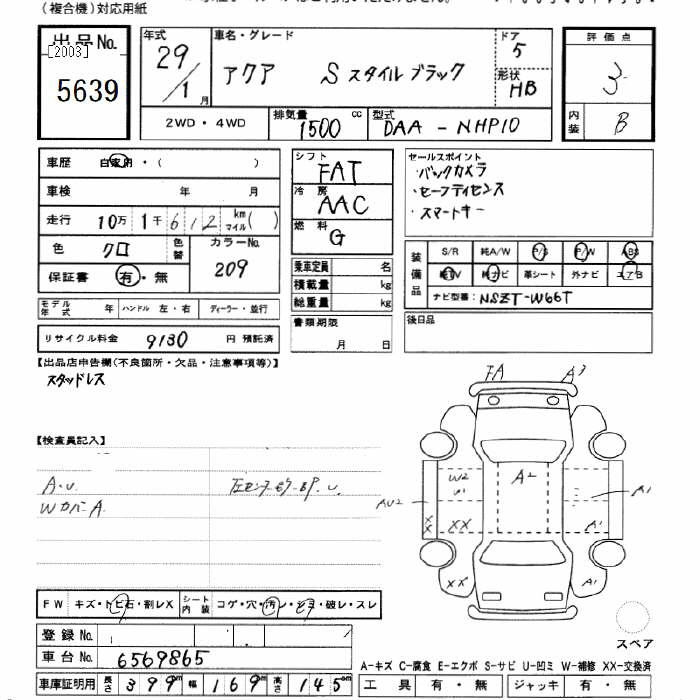 (複合機)対応用紙
出品No.
[2003]
5639
年式
29/1月
車名・グレード
アクア Sスタイルブラック
ドア
5
形状
HB
評価点
3
内装
B
2WD・4WD
排気量
1500
cc
型式
DAA-NHP10
車歴 自家用・( )
車検 年 月
走行 10万 1千 612 km マイル( )
色 クロ 色替
カラーNo.
209
保証書 有・無
モデル年式 年 ハンドル 左・右 ディーラー・並行
リサイクル料金 9130 円 預託済
シフト
FAT
冷房
AAC
燃料
G
乗車定員 名
積載量 kg
総重量 kg
書類期限
月 日
セールスポイント
・バックカメラ
・セーフティセンス
・スマートキー
装備品
S/R 純A/W P/S P/W ABS
純TV 純ナビ 革シート 外ナビ エアB
ナビ型番: NSZT-W66T
後日品
【出品店申告欄(不良箇所・欠品・注意事項等)】
スタッドレス
【検査員記入】
A・U
Wカバー A.
FA
A3
W2
A2
A1
AU2
XX
XX
A1
XX
A1
スペア
FW キズ・トビ石・割レX
シート内装 コゲ・穴・汚レ・シミ・破レ・スレ
登録No.
車台No. 6569865
車庫証明用 長さ 399cm 幅 169cm 高さ 145cm
A-キズ C-腐食 E-エクボ S-サビ U-凹ミ W-補修 XX-交換済
工具 有・無 ジャッキ 有・無